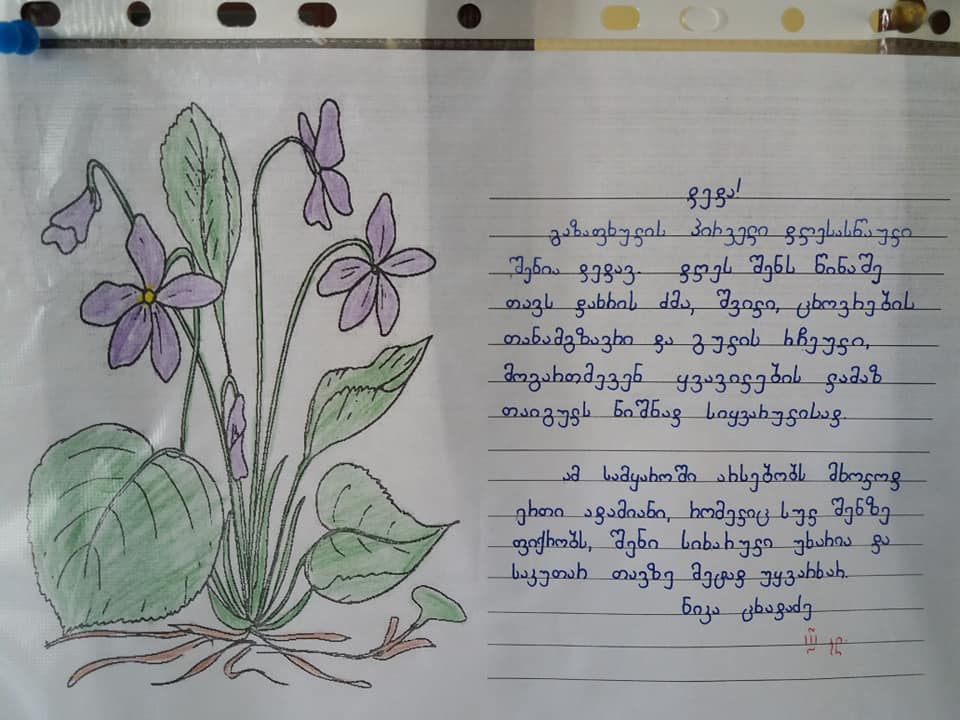 დედა!
გაზაფხულის პირველი დღესასწაული
შენია დედავ. დღეს შენს წინაშე
თავს დახრის ძმა, შვილი, ცხოვრების
თანამგზავრი და გულის რჩეული,
მოგართმევენ ყვავილების ლამაზ
თაიგულს ნიშნად სიყვარულისად.
ამ სამყაროში არსებობს მხოლოდ
ერთი ადამიანი, რომელიც სულ შენზე
ფიქრობს, შენი სიხარული უხარია და
საკუთარ თავზე მეტად უყვარხარ.
ნიკა ცხადაძე